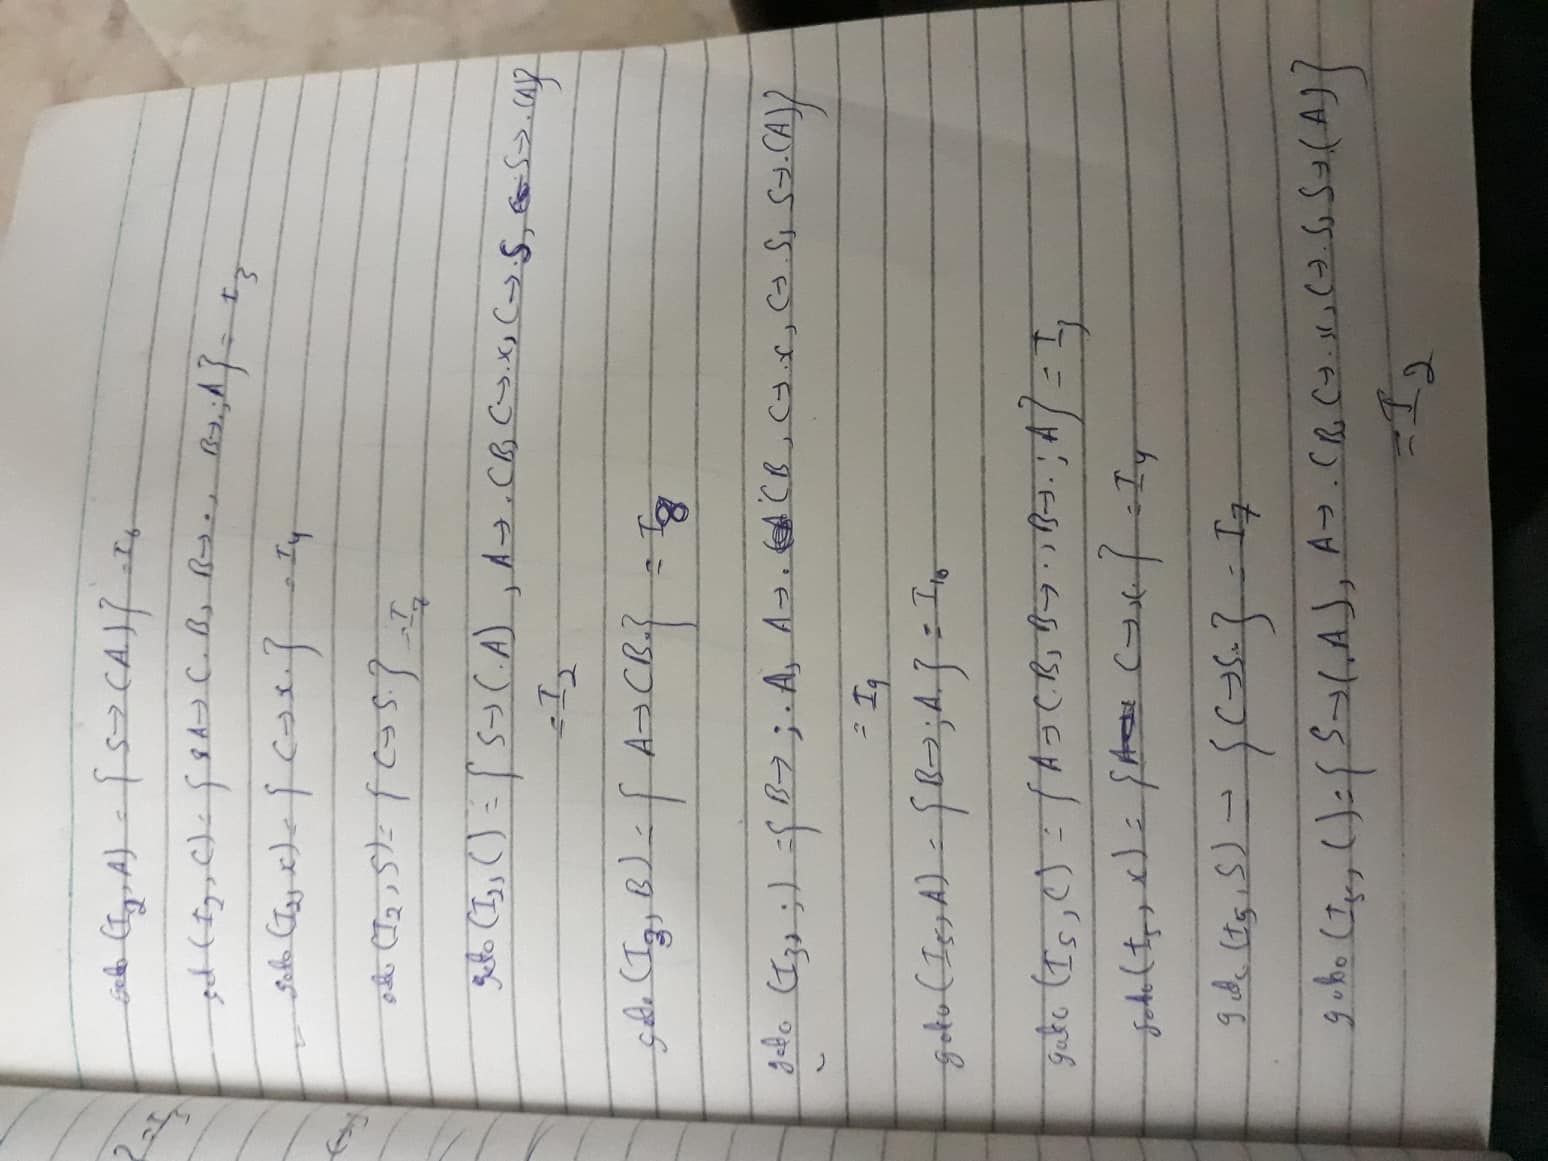 goto (I2, A) = { S→(A.)} = I6
get (I2, C) = { A→ C.B, B→., B→.;A} = I3
goto (I2, x) = { C→x.} = I4
goto (I2, S) = { C→S.} = I7
goto (I2, () = { S→(.A), A→.CB, C→.x, C→.S, S→.(A)}
= I2
goto (I3, B) = { A→CB.} = I8
goto (I3, ;) = { B→;.A, A→.CB, C→.x, C→.S, S→.(A)}
= I9
goto (I5, A) = { B→;A.} = I10
goto (I5, C) = { A→C.B, B→., B→.;A} = I3
goto (I5, x) = { C→x.} = I4
goto (I5, S) → { C→S.} = I7
goto (I5, () = { S→(.A), A→.CB, C→.x, C→.S, S→.(A)}
= I2